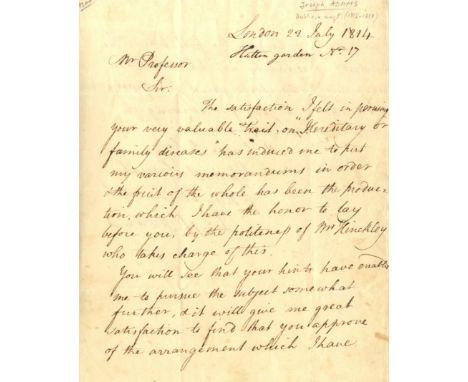 Joseph ADAMS
London 22 July 1814.
Hatton garden No. 17
Mr Professor
Sir.
The satisfaction I felt in perusing
your very valuable Trait on "Hereditary or
family diseases" has induced me to put
my various memorandums in order
& the fruit of the whole has been the produc-
tion, which I have the honor to lay
before you, by the politeness of Mr Hinckley
who takes charge of this.
You will see that your hints have enabled
me to pursue the subject somewhat
further, & it will give me great
satisfaction to find that you approve
of the arrangement which I have